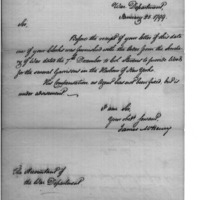 War Department
January 23. 1799
Sir,
Before the receipt of your letter of this date
one of your Clerks was furnished with the letter from the Secretary
of War dated the 7th December to Col. Stevens to provide
for the several garrisons in the Harbour of New York.
His Compensation as Agent has not been fixed, but is
under advisement.
I am Sir,
Your Obt Servant
James McHenry
The Accountant of
the War Department